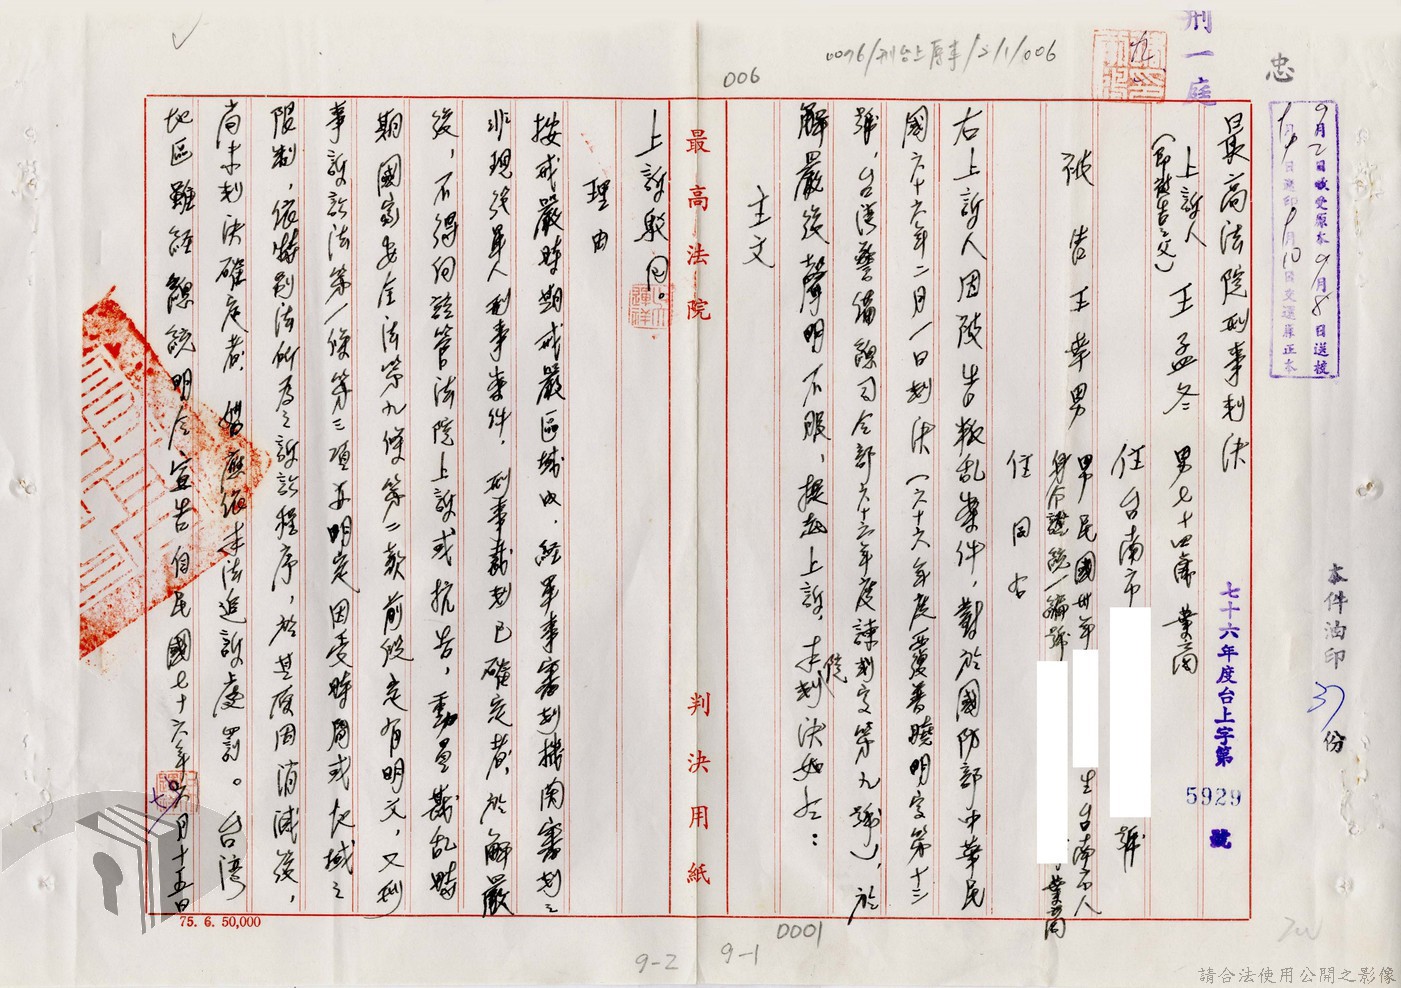 忠
刑一庭
0076/刑台上更事/2/1/006
006
9月2日收受原本9月8日送校
9月9日送印9月10日交還原正本
本件油印37份
七十六年度台上字第5929號
最高法院刑事判決
上訴人
(即被告之父)
王孟冬 男七十四歲 業商
住台南市 號
被告王幸男 男民國卅年 生台南市人
身分證統一編號 業商
住同右
右上訴人因被告叛乱案件,對於國防部中華民
國六十六年二月一日判決(六十六年度覆普曉明字第十三
號,台灣警備總司令部六十六年度諫判字第九號),於
解嚴後聲明不服,提起上訴,本院判決如左:
主文
上訴駁回。
理由
按戒嚴時期戒嚴區域內,經軍事審判機關審判之
非現役軍人刑事案件,刑事裁判已確定者,於解嚴
後,不得向該管法院上訴或抗告,動員戡乱時
期國家安全法第九條第二款前段定有明文,又刑
事訴訟法第一條第三項亦明定因受時間或地域之
限制,依特別法所為之訴訟程序,於其原因消滅後,
尚未判決確定者,始應依本法追訴處罰。台灣
地區雖經總統明令宣告自民國七十六年七月十五日
最高法院
判決用紙
75. 6. 50,000
0001
9-2
9-1
請合法使用公開之影像